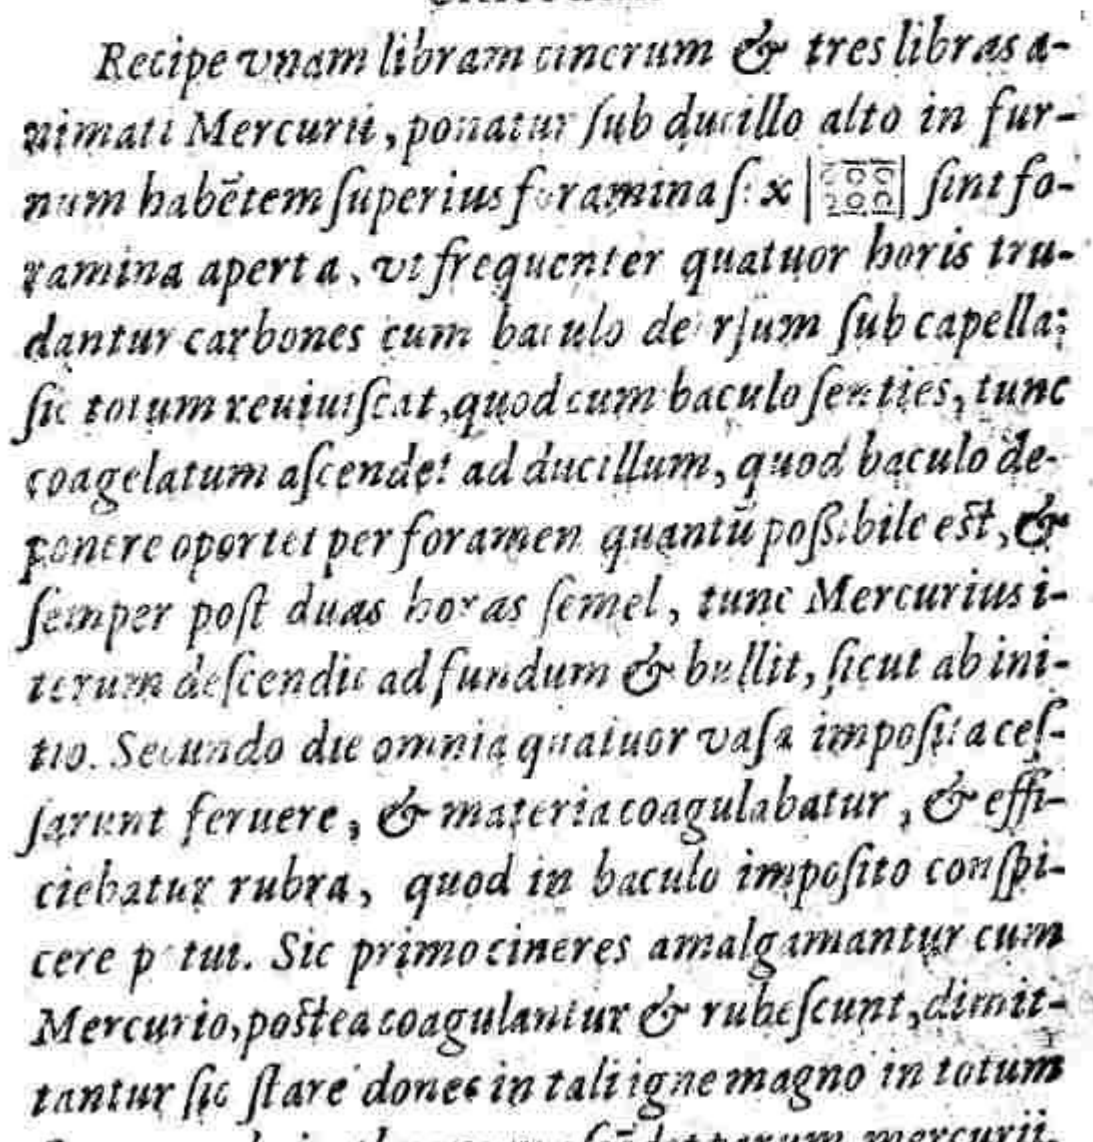 Recipe vnam libram cinerum & tres libras a-
nimati Mercurii, ponatur ſub ducillo alto in fur-
num habētem ſuperius foramina ſ: x ſint fo-
ramina aperta, vt frequenter quatuor horis tru-
dantur carbones cum baculo deorſum ſub capella;
ſic totum reuiuiſcat, quod cum baculo ſenties, tunc
coagelatum aſcendet ad ducillum, quod baculo de-
ponere oportet per foramen quantū poßibile est, &
ſemper poſt duas horas ſemel, tunc Mercurius i-
terum deſcendit ad fundum & bullit, ſicut ab ini-
tio. Secundo die omnia quatuor vaſa impoſita ceſ-
ſarunt feruere, & materia coagulabatur, & effi-
ciebatur rubra, quod in baculo impoſito conſpi-
cere potui. Sic primo cineres amalgamantur cum
Mercurio, postea coagulantur & rubeſcunt, dimit-
tantur ſic ſtare donec in tali igne magno in totum
mercurii